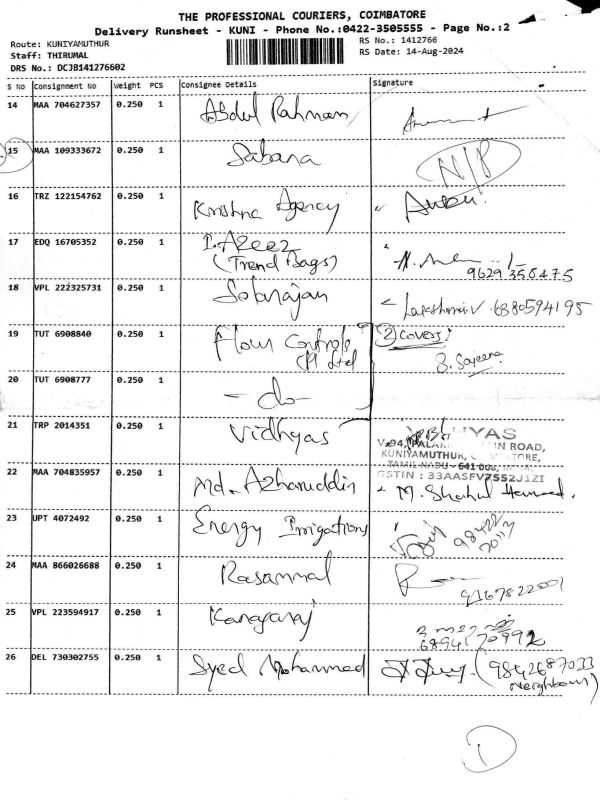 THE PROFESSIONAL COURIERS, COIMBATORE
Delivery Runsheet - KUNI - Phone No.:0422-3505555 - Page No.:2
Route: KUNIYAMUTHUR
RS No.: 1412766
Staff: THIRUMAL
RS Date: 14-Aug-2024
DRS No.: DCJB141276602
S No Consignment No Weight PCS Consignee Details Signature
14 MAA 704627357 0.250 1 Abdul Rahman
15 MAA 109333672 0.250 1 Sabana N/P
16 TRZ 122154762 0.250 1 Krishna Agency
17 EDQ 16705352 0.250 1 I. Azeez
(Trend Bags)
9629 356475
18 VPL 222325731 0.250 1 Lakshmi.V 6380594195
19 TUT 6908840 0.250 1 Flow Controls 2 covers
(P) Ltd
20 TUT 6908777 0.250 1 - do -
21 TRP 2014351 0.250 1 Vidhyas
KUNIYAMUTHUR,
TAMIL NADU - 641 008,
GSTIN : 33AASFV7552J1ZI
22 MAA 704835957 0.250 1 Md. Azharuddin M. Shahul Hameed.
23 UPT 4072492 0.250 1 Energy Irrigations 98422
24 MAA 866026688 0.250 1 Rasammal
25 VPL 223594917 0.250 1 Kanagaraj
26 DEL 730302755 0.250 1 Syed Mohammed (9842687033
Neighbour)
1